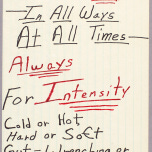 In All Ways
At All Times
Always
For Intensity
Cold or Hot
Hard or Soft
Gut-Wrenching or